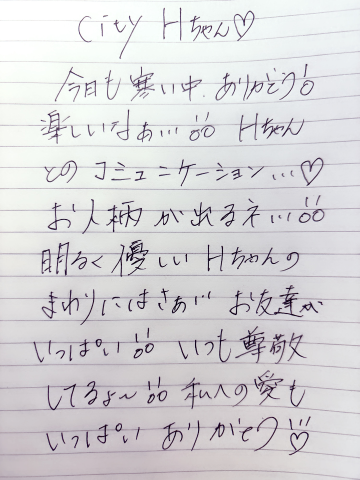 city Hちゃん♡
今日も寒い中、ありがとう
楽しいなぁ… Hちゃん
とのコミュニケーション…♡
お人柄が出るネ…
明るく優しいHちゃんの
まわりにはさぁ… お友達が
いっぱい いつも尊敬
してるよ〜 私への愛も
いっぱい ありがとう♡